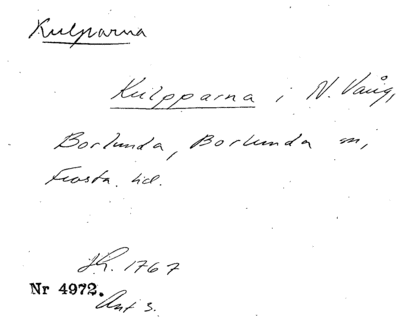 Kulparna
Kulpparna i N. Vång,
Borlunda, Borlunda sn,
Frosta hd.
Sk. 1767
Nr 4972.
Akt 3.